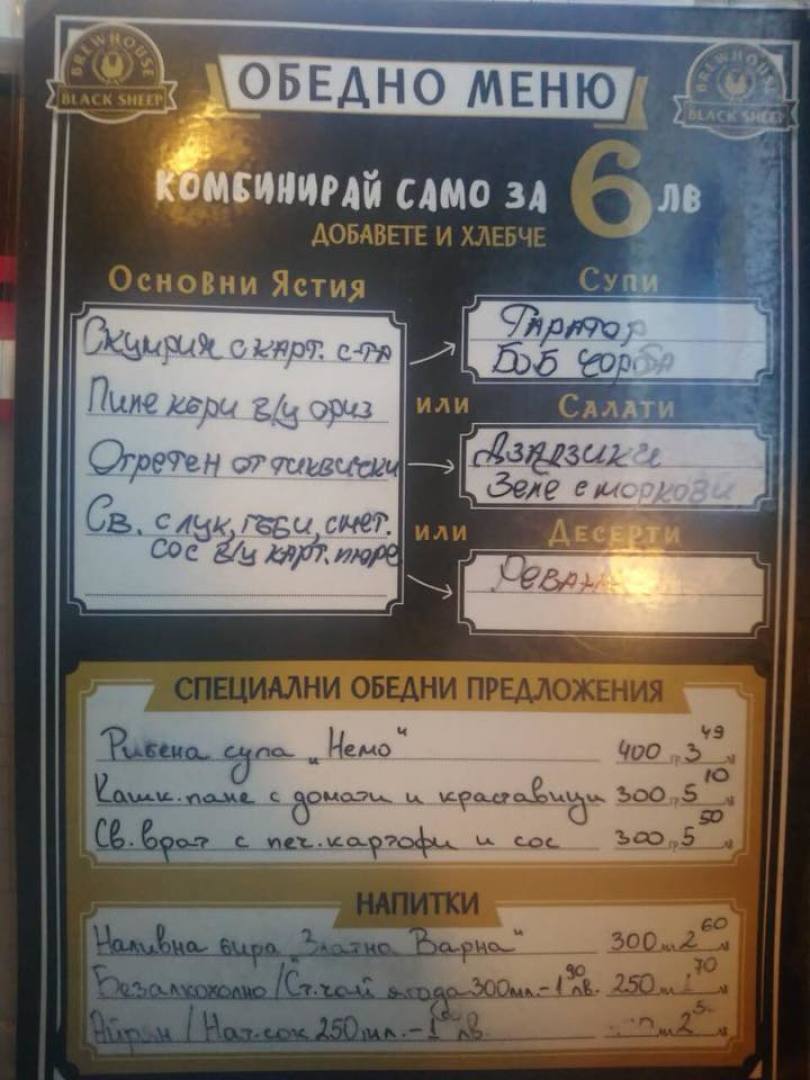 BREWHOUSE
BLACK SHEEP
ОБЕДНО МЕНЮ
BREWHOUSE
BLACK SHEEP
КОМБИНИРАЙ САМО ЗА 6 ЛВ
ДОБАВЕТЕ И ХЛЕБЧЕ
Основни Ястия
Скумрия с карт. с-та
Пиле къри в/у ориз
Огретен от тиквички
Св. с лук, гъби, смет.
сос в/у карт. пюре
Супи
Таратор
Боб чорба
или
Салати
Дзадзики
Зеле с моркови
или
Десерти
СПЕЦИАЛНИ ОБЕДНИ ПРЕДЛОЖЕНИЯ
Рибена супа „Немо“ 400 гр. 3 49
Кашк. пане с домати и краставици 300 гр. 5 10
Св. врат с печ. картофи и сос 300 гр. 5 50
НАПИТКИ
Наливна бира „Златна Варна“ 300 мл 2 60
Безалкохолно / Ст. чай ягода 300мл. - 1 90 лв. 250 мл 70
Айрян / Нат. сок 250 мл. - 1 лв. 2